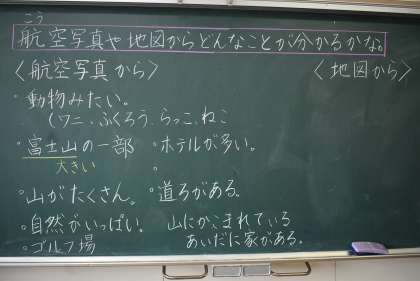 こう
航空写真や地図からどんなことが分かるかな。
〈航空写真から〉
〈地図から〉
・動物みたい。
(ワニ、ふくろう、らっこ、ねこ
・富士山の一部
大きい
・ホテルが多い。
・山がたくさん。
・道ろがある。
・自然がいっぱい。
山にかこまれている
あいだに家がある。
・ゴルフ場